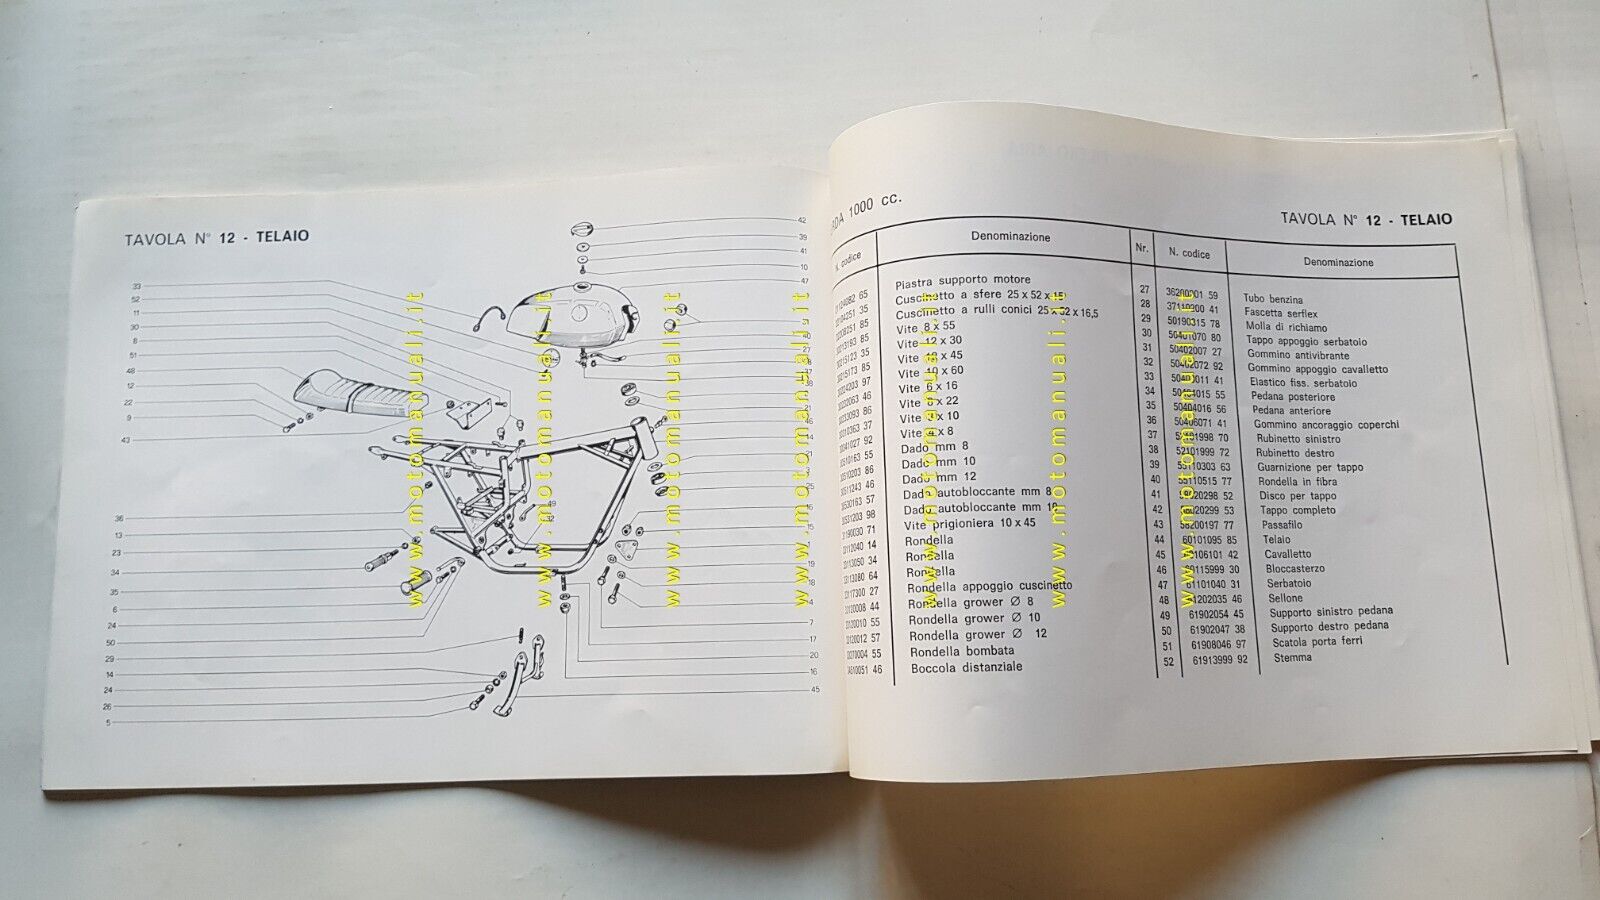 TAVOLA N° 12 - TELAIO
42
39
41
10
47
33
52
11
30
8
51
48
12
22
9
43
31
40
27
37
38
21
46
14
21
3
25
49
32
36
13
23
34
35
6
24
50
29
14
24
26
5
16
15
1
19
18
4
7
17
20
16
45
1000 cc.
TAVOLA N° 12 - TELAIO
N. codice Denominazione Nr. N. codice Denominazione
65 Piastra supporto motore 27 36200001 59 Tubo benzina
35 Cuscinetto a sfere 25 x 52 x 15 28 41 Fascetta serflex
85 Cuscinetto a rulli conici 25 x 52 x 16,5 29 50190315 78 Molla di richiamo
85 Vite 8 x 55 30 50401070 80 Tappo appoggio serbatoio
35 Vite 12 x 30 31 50402007 27 Gommino antivibrante
85 Vite 45 32 50402072 92 Gommino appoggio cavalletto
97 Vite 10 x 60 33 41 Elastico fiss. serbatoio
46 Vite 6 x 16 34 55 Pedana posteriore
86 Vite x 22 35 50404016 56 Pedana anteriore
37 Vite x 10 36 50406071 41 Gommino ancoraggio coperchi
92 Vite 4 x 8 37 52101998 70 Rubinetto sinistro
55 Dado mm 8 38 52101999 72 Rubinetto destro
86 Dado mm 10 39 55110303 63 Guarnizione per tappo
46 Dado mm 12 40 55110515 77 Rondella in fibra
57 Dado autobloccante mm 8 41 52 Disco per tappo
98 Dado autobloccante mm 10 42 53 Tappo completo
71 Vite prigioniera 10 x 45 43 58200197 77 Passafilo
14 Rondella 44 60101095 85 Telaio
34 Rondella 45 60106101 42 Cavalletto
64 Rondella 46 60115999 30 Bloccasterzo
27 Rondella appoggio cuscinetto 47 61101040 31 Serbatoio
44 Rondella grower Ø 8 48 61202035 46 Sellone
55 Rondella grower Ø 10 49 61902054 45 Supporto sinistro pedana
57 Rondella grower Ø 12 50 61902047 38 Supporto destro pedana
55 Rondella bombata 51 61908046 97 Scatola porta ferri
46 Boccola distanziale 52 61913999 92 Stemma
www.motomanuali.it
www.motomanuali.it
www.motomanuali.it
www.motomanuali.it
www.motomanuali.it
www.motomanuali.it
www.motomanuali.it